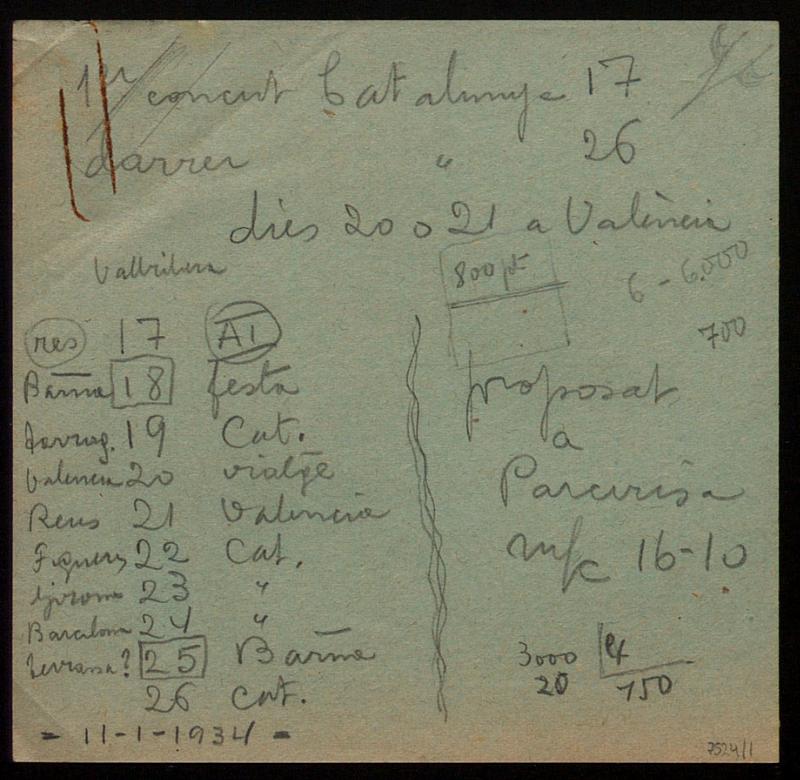 1er concert Catalunya 17
darrer " 26
dies 20 o 21 a València
Vallvidrera
800 pts
6 - 6.000
700
res 17 A1
Barna 18 festa
Tarrag. 19 Cat.
Valencia 20 viatge
Reus 21 Valencia
Figueres 22 Cat.
Girona 23 "
Barcelona 24 "
Terrassa? 25 Barna
26 Cat.
- 11-1-1934 -
proposat
a
Parcerisa
16-10
3000 4
20 750
7524/1